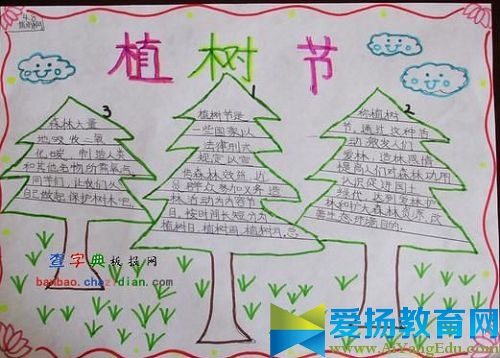 植树节
3
森林大量
地吸收二氧
化碳,制造人类
和其它动物所需氧气
同学们,让我们从
自己做起,保护树木吧
1
植树节是
一些国家以
法律形式
规定以宣
传森林效益,动
员群众参加义务造
林活动为内容节
日,按时间长短分为
植树日,植树周,植树月,总
2
称植树
节,通过这种活
动,激发人们
爱林、造林感情
提高人们对森林功用
认识促进国土
绿化,达到爱林护
林和扩大森林资源、改
善生态环境目的.
查字典板报网
banbao.chazidian.com
爱扬教育网
www.AiYangEdu.com